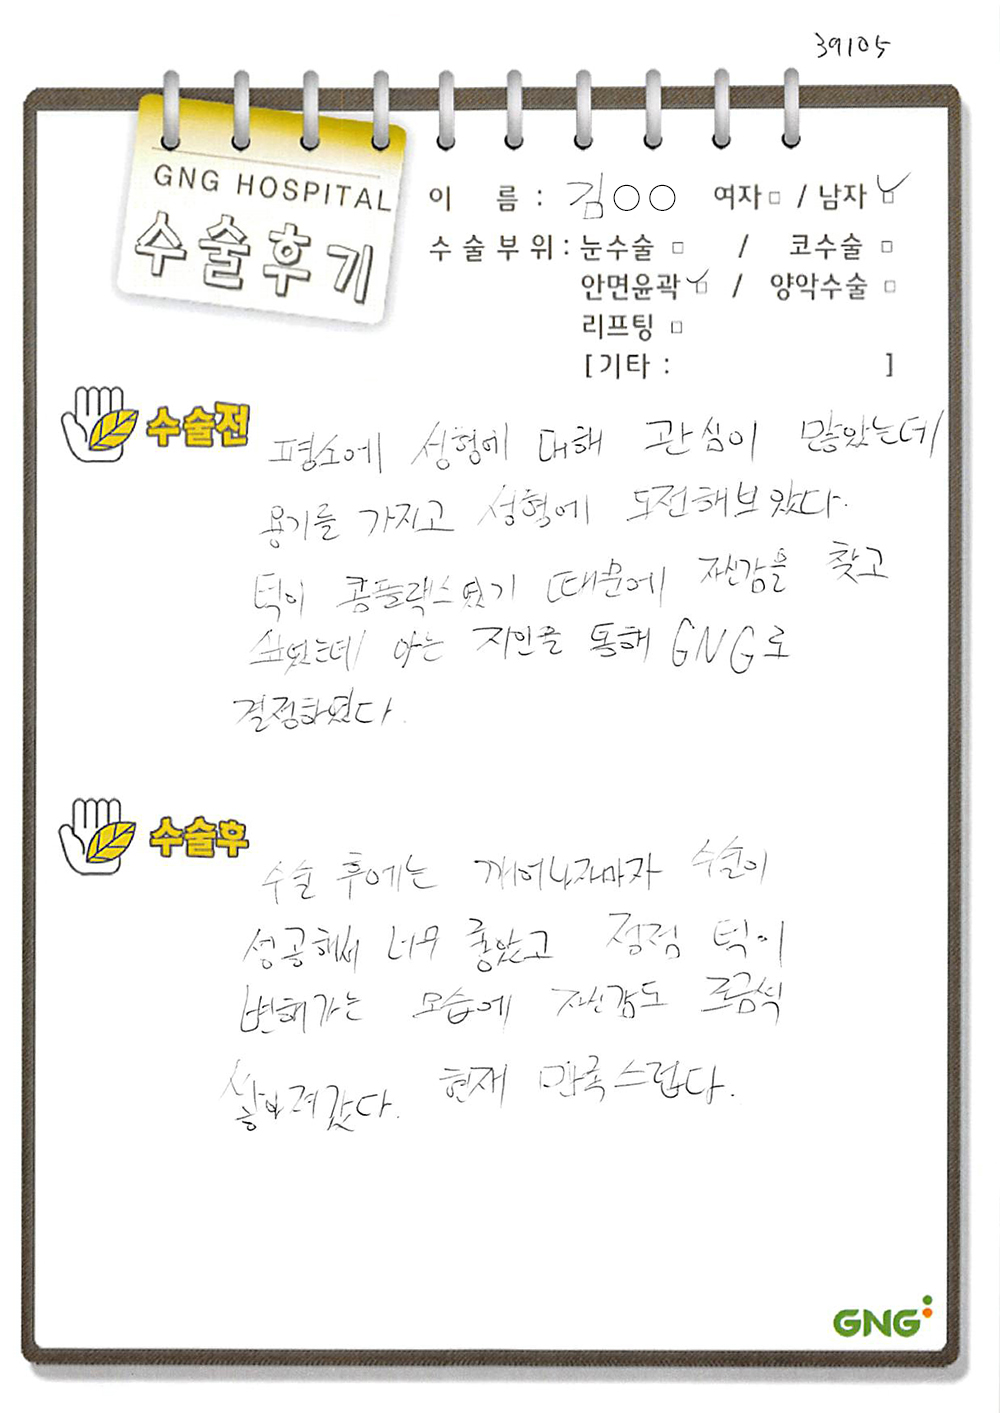 39105
GNG HOSPITAL
수술후기
이 름 : 김○○ 여자□ / 남자☑
수술부위 : 눈수술 □ / 코수술 □
안면윤곽 ☑ / 양악수술 □
리프팅 □
[기타 : ]
수술전
평소에 성형에 대해 관심이 많았는데
용기를 가지고 성형에 도전해보았다.
턱이 콤플랙스였기 때문에 자신감을 찾고
싶었는데 아는 지인을 통해 GNG로
결정하였다.
수술후
수술 후에는 깨어나자마자 수술이
성공해서 너무 좋았고 점점 턱이
변해가는 모습에 자신감도 조금씩
쌓아져갔다. 현재 만족스럽다.
GNG